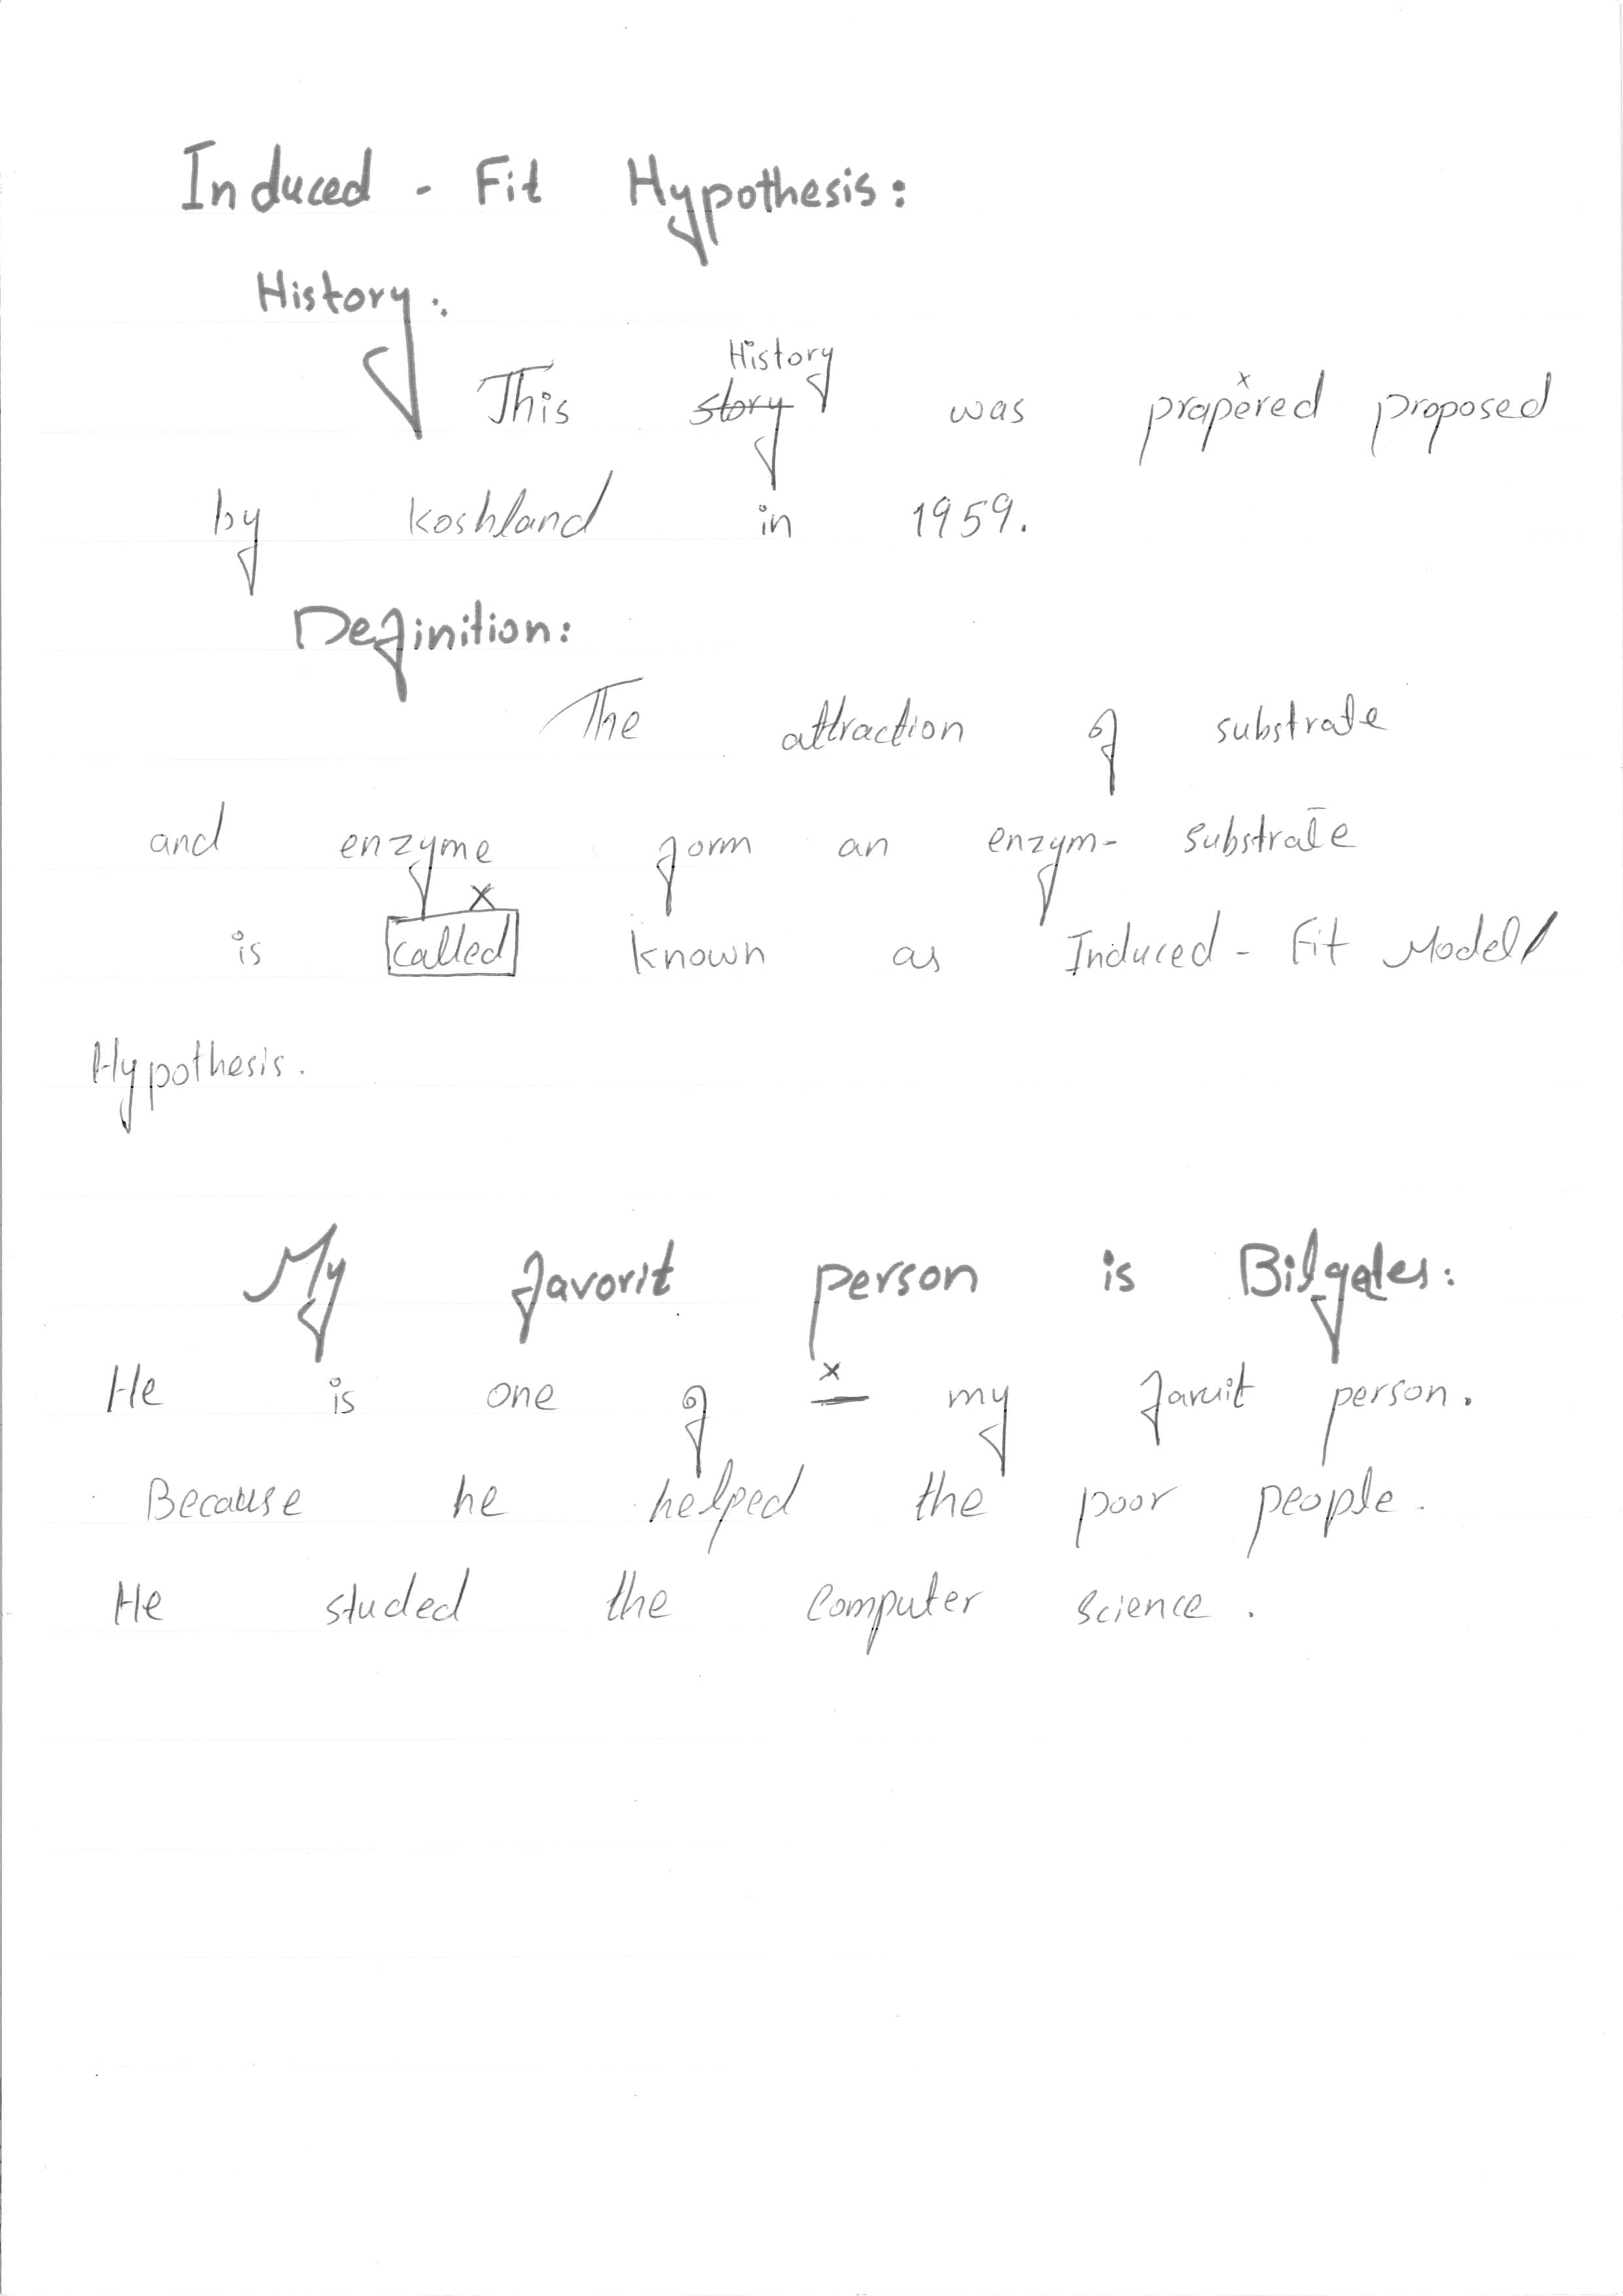 Induced - Fit Hypothesis:
History:
History
This story was prapered proposed
by Koshland in 1959.
Definition:
The attraction of substrate
and enzyme form an enzym- substrate
is called known as Induced - Fit Model/
Hypothesis.
My favorit person is Bilgates:
He is one of my favuit person.
Because he helped the poor people.
He studed the Computer science.